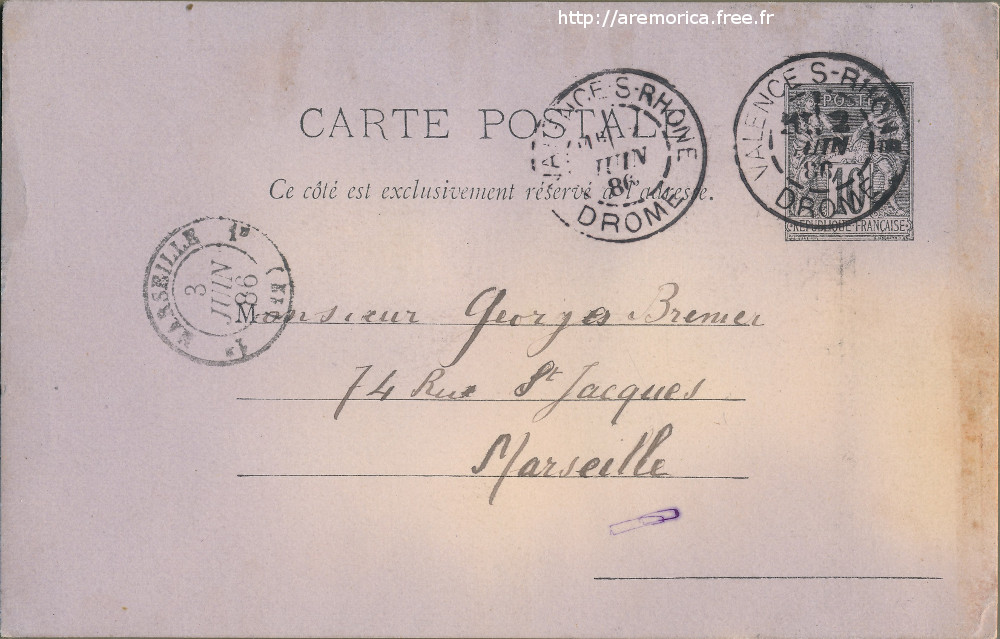 http://aremorica.free.fr
CARTE POSTALE
Ce côté est exclusivement réservé à l'adresse.
VALENCE-S-RHONE
JUIN
86
DROME
VALENCE-S-RHONE
2E
2
JUIN
86
DROME
POSTES
10
REPUBLIQUE FRANÇAISE
MARSEILLE
1E
3
JUIN
86
1E
Monsieur Georges Bremer
74 Rue St Jacques
Marseille